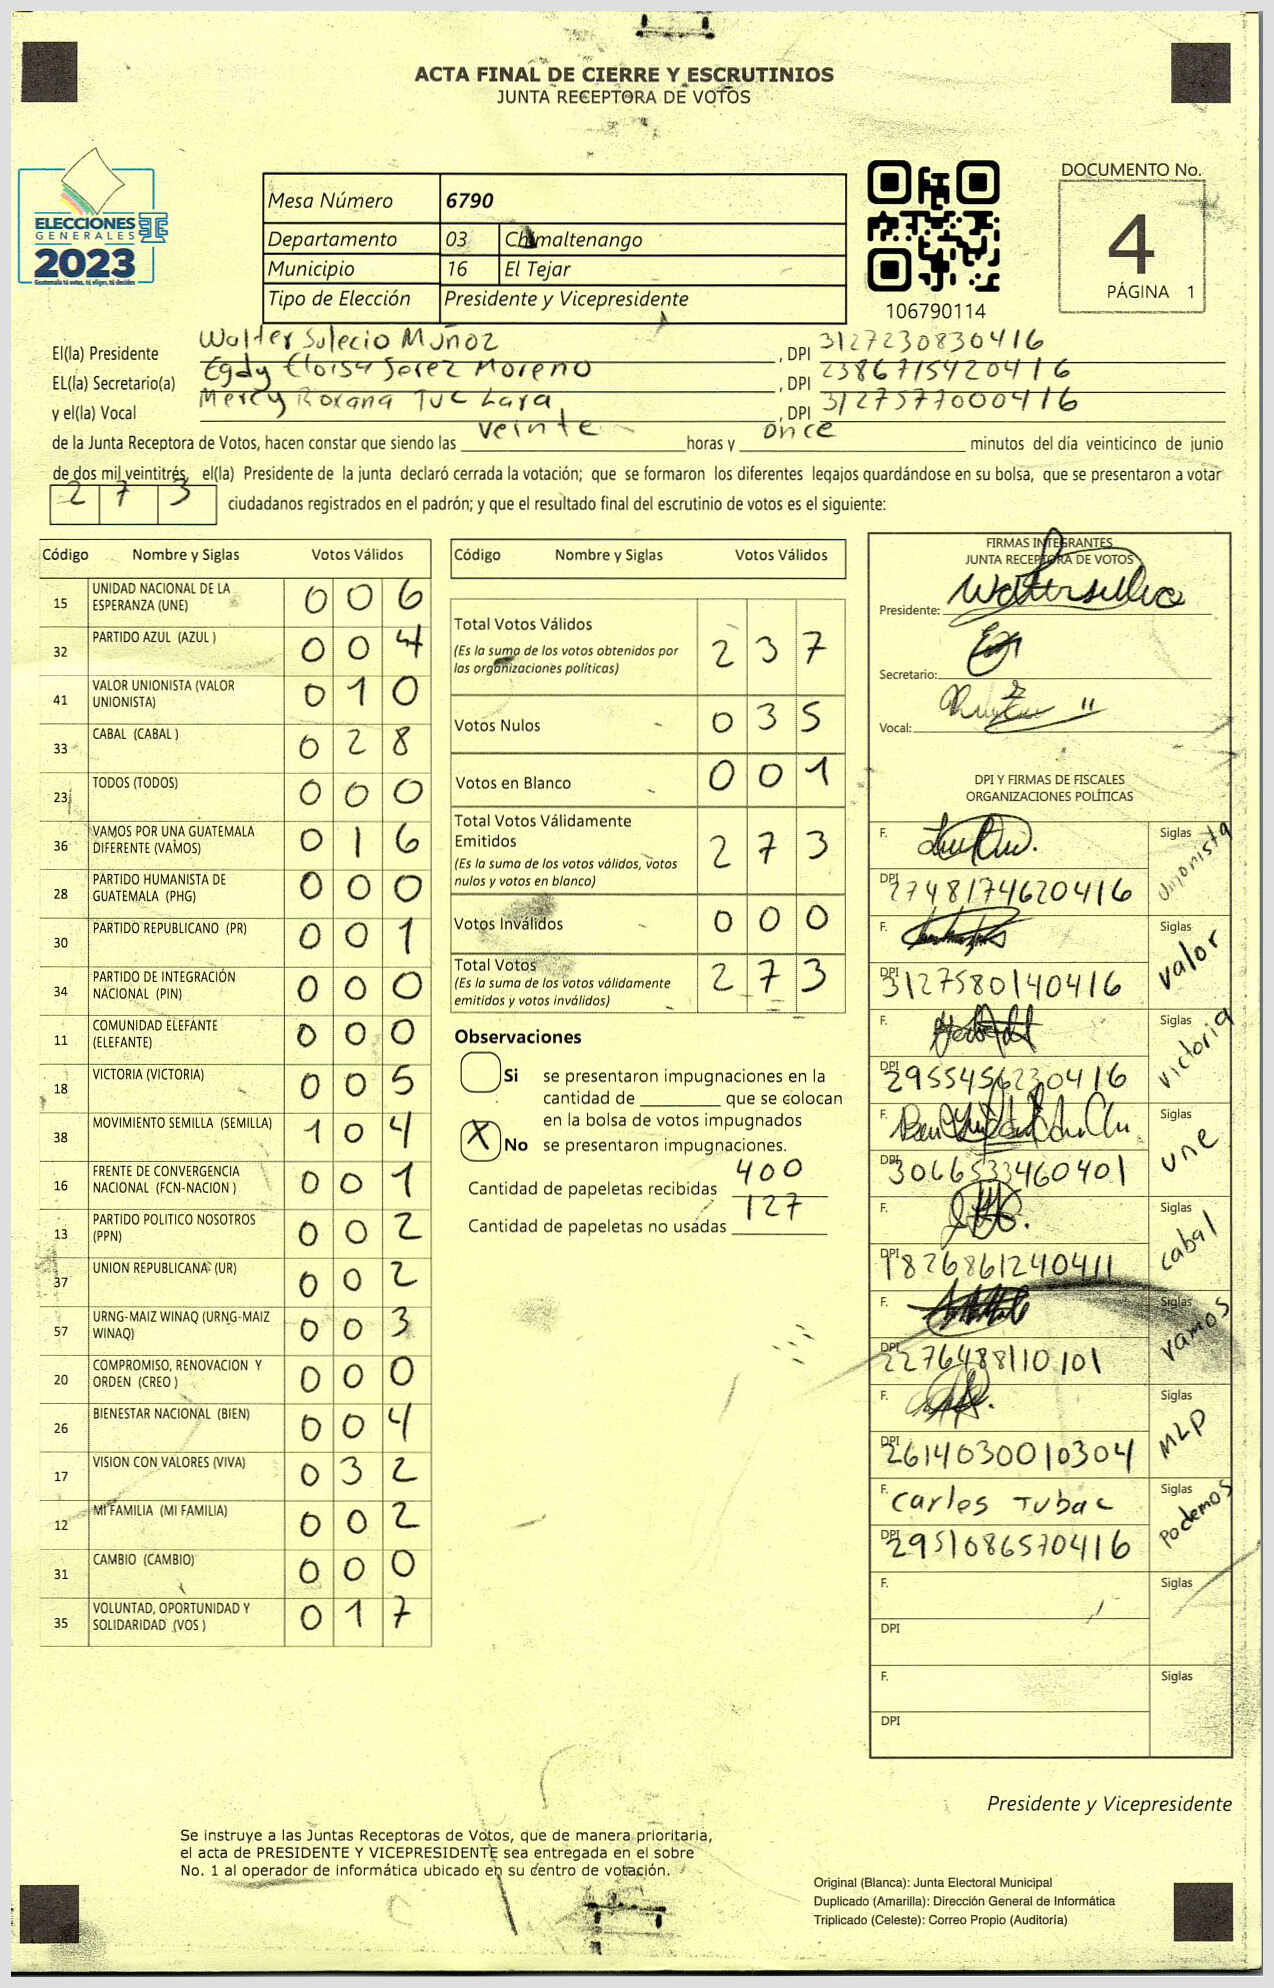 ACTA FINAL DE CIERRE Y ESCRUTINIOS
JUNTA RECEPTORA DE VOTOS
ELECCIONES
GENERALES
2023
Guatemala tú votas, tú eliges, tú decides
Mesa Número 6790
Departamento 03 Chimaltenango
Municipio 16 El Tejar
Tipo de Elección Presidente y Vicepresidente
106790114
DOCUMENTO No.
4
PÁGINA 1
El(la) Presidente Walter Sulecio Muñoz, DPI 3127230830416
EL(la) Secretario(a) Egdy Eloisa Jerez Moreno, DPI 2386715420416
y el(la) Vocal Mercy Roxana Tuc Lara, DPI 3127577000416
de la Junta Receptora de Votos, hacen constar que siendo las veinte horas y once minutos del día veinticinco de junio
de dos mil veintitrés, el(la) Presidente de la junta declaró cerrada la votación; que se formaron los diferentes legajos guardándose en su bolsa, que se presentaron a votar
273 ciudadanos registrados en el padrón; y que el resultado final del escrutinio de votos es el siguiente:
Código Nombre y Siglas Votos Válidos
15 UNIDAD NACIONAL DE LA ESPERANZA (UNE) 006
32 PARTIDO AZUL (AZUL ) 004
41 VALOR UNIONISTA (VALOR UNIONISTA) 010
33 CABAL (CABAL ) 028
23 TODOS (TODOS) 000
36 VAMOS POR UNA GUATEMALA DIFERENTE (VAMOS) 016
28 PARTIDO HUMANISTA DE GUATEMALA (PHG) 000
30 PARTIDO REPUBLICANO (PR) 001
34 PARTIDO DE INTEGRACIÓN NACIONAL (PIN) 000
11 COMUNIDAD ELEFANTE (ELEFANTE) 000
18 VICTORIA (VICTORIA) 005
38 MOVIMIENTO SEMILLA (SEMILLA) 104
16 FRENTE DE CONVERGENCIA NACIONAL (FCN-NACION ) 001
13 PARTIDO POLITICO NOSOTROS (PPN) 002
37 UNION REPUBLICANA (UR) 002
57 URNG-MAIZ WINAQ (URNG-MAIZ WINAQ) 003
20 COMPROMISO, RENOVACION Y ORDEN (CREO ) 000
26 BIENESTAR NACIONAL (BIEN) 004
17 VISION CON VALORES (VIVA) 032
12 MI FAMILIA (MI FAMILIA) 002
31 CAMBIO (CAMBIO) 000
35 VOLUNTAD, OPORTUNIDAD Y SOLIDARIDAD (VOS ) 017
Código Nombre y Siglas Votos Válidos
Total Votos Válidos 237
(Es la suma de los votos obtenidos por
las organizaciones políticas)
Votos Nulos 035
Votos en Blanco 001
Total Votos Válidamente
Emitidos 273
(Es la suma de los votos válidos, votos
nulos y votos en blanco)
Votos Inválidos 000
Total Votos 273
(Es la suma de los votos válidamente
emitidos y votos inválidos)
Observaciones
Si se presentaron impugnaciones en la
cantidad de ________ que se colocan
en la bolsa de votos impugnados
X No se presentaron impugnaciones.
Cantidad de papeletas recibidas 400
Cantidad de papeletas no usadas 127
FIRMAS INTEGRANTES
JUNTA RECEPTORA DE VOTOS
Presidente:
Secretario:
Vocal:
DPI Y FIRMAS DE FISCALES
ORGANIZACIONES POLÍTICAS
F. Siglas Unionista
DPI 2748174620416
F. Siglas Valor
DPI 3127580140416
F. Siglas Victoria
DPI 2955456230416
F. Siglas une
DPI 3066533460401
F. Siglas cabal
DPI 1826861240411
F. Siglas vamos
DPI 2276488110101
F. Siglas MLP
DPI 2614030010304
F. Carlos Tubac Siglas Podemos
DPI 2951086570416
F. Siglas
DPI
F. Siglas
DPI
Presidente y Vicepresidente
Se instruye a las Juntas Receptoras de Votos, que de manera prioritaria,
el acta de PRESIDENTE Y VICEPRESIDENTE sea entregada en el sobre
No. 1 al operador de informática ubicado en su centro de votación.
Original (Blanca): Junta Electoral Municipal
Duplicado (Amarilla): Dirección General de Informática
Triplicado (Celeste): Correo Propio (Auditoría)